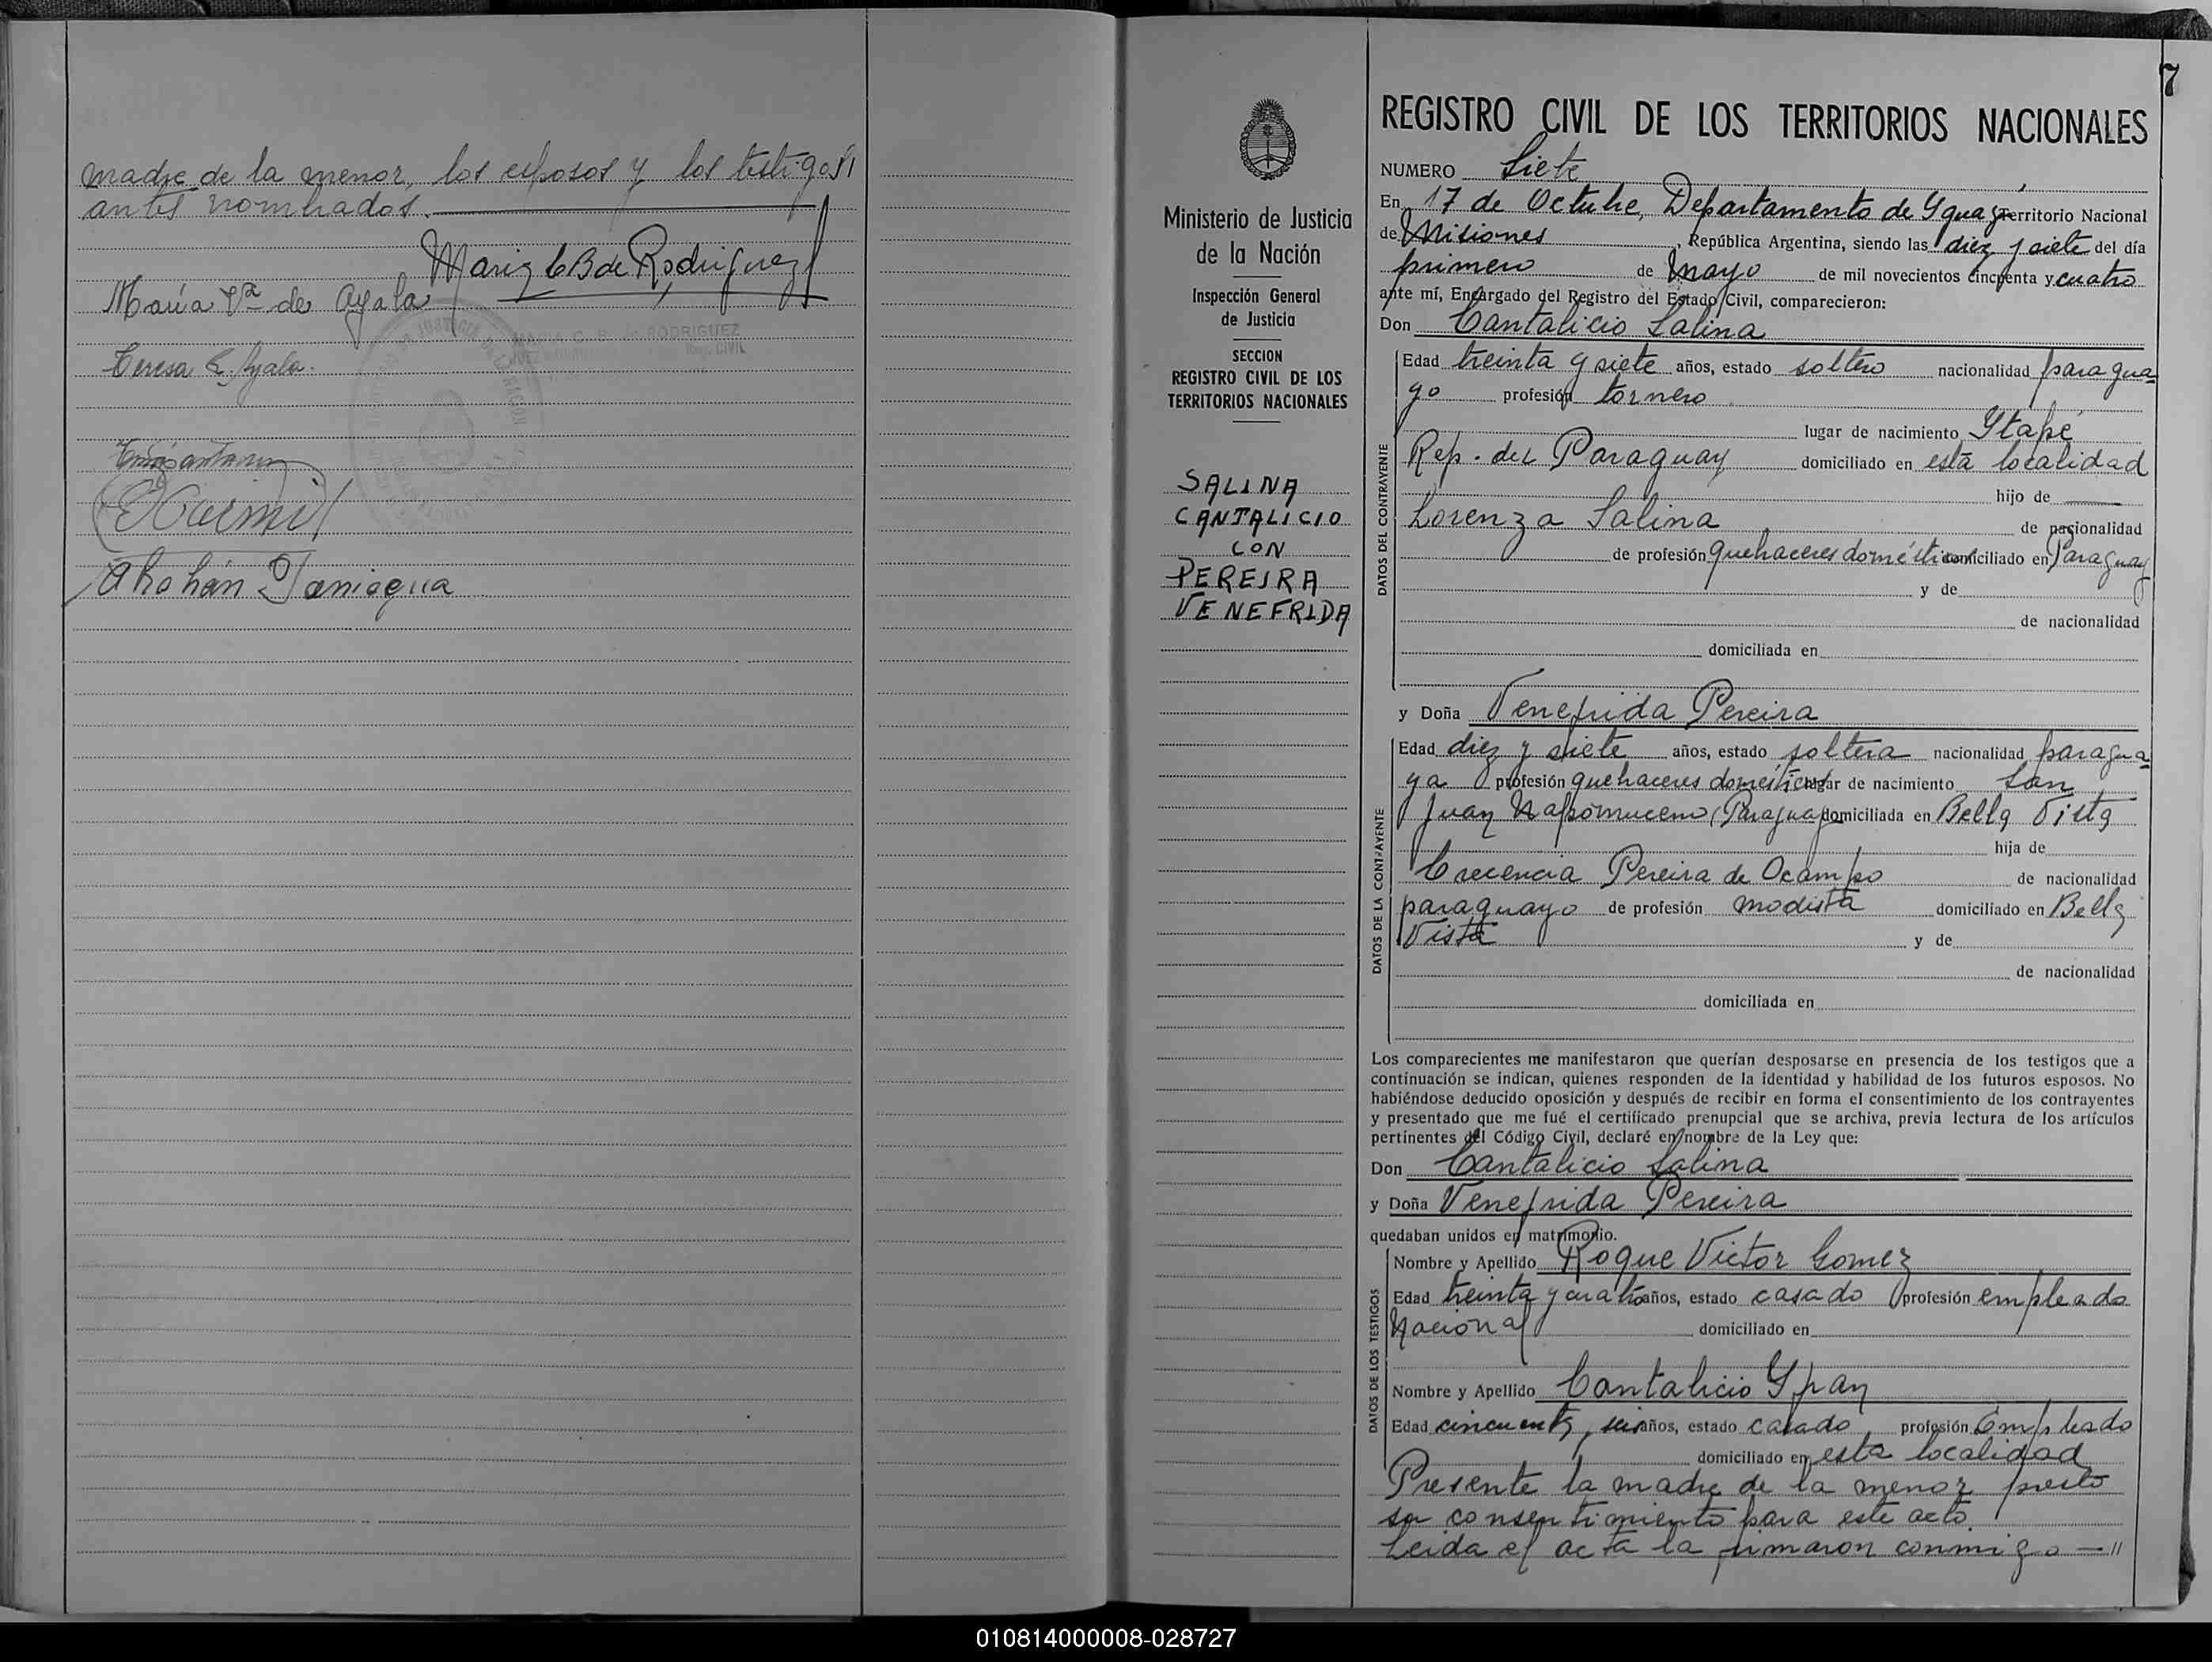 madre de la menor, los esposos y los testigos
antes nombrados.
Maria C B de Rodriguez
María Va de Ayala
MARIA C. B. de RODRIGUEZ
Teresa L. Ayala.
Abohán Paniagua
7
REGISTRO CIVIL DE LOS TERRITORIOS NACIONALES
NUMERO Siete
En 17 de Octubre, Departamento de Yguazú Territorio Nacional
de Misiones, República Argentina, siendo las diez y siete del día
primero de Mayo de mil novecientos cincuenta y cuatro
ante mí, Encargado del Registro del Estado Civil, comparecieron:
Don Cantalicio Salina
Edad treinta y siete años, estado soltero nacionalidad paragua-
yo profesión tornero
lugar de nacimiento Ytapé
Rep. del Paraguay domiciliado en esta localidad
hijo de
Lorenza Salina de nacionalidad
de profesión quehaceres domésticos domiciliado en Paraguay
y de
de nacionalidad
domiciliada en
DATOS DEL CONTRAYENTE
y Doña Venefrida Pereira
Edad diez y siete años, estado soltera nacionalidad paragua-
ya profesión quehaceres domésticos lugar de nacimiento San
Juan Napomuceno (Paraguay) domiciliada en Bella Vista
hija de
Crecencia Pereira de Ocampo de nacionalidad
paraguayo de profesión modista domiciliado en Bella
Vista y de
de nacionalidad
domiciliada en
DATOS DE LA CONTRAYENTE
Los comparecientes me manifestaron que querían desposarse en presencia de los testigos que a
continuación se indican, quienes responden de la identidad y habilidad de los futuros esposos. No
habiéndose deducido oposición y después de recibir en forma el consentimiento de los contrayentes
y presentado que me fué el certificado prenupcial que se archiva, previa lectura de los artículos
pertinentes del Código Civil, declaré en nombre de la Ley que:
Don Cantalicio Salina
y Doña Venefrida Pereira
quedaban unidos en matrimonio.
Nombre y Apellido Roque Victor Gomez
Edad treinta y cuatro años, estado casado profesión empleado
Nacional domiciliado en
Nombre y Apellido Cantalicio Ypan
Edad cincuenta y seis años, estado casado profesión Empleado
domiciliado en esta localidad
DATOS DE LOS TESTIGOS
Presente la madre de la menor presto
su consentimiento para este acto.
Leida el acta la firmaron conmigo —"
Ministerio de Justicia
de la Nación
Inspección General
de Justicia
SECCION
REGISTRO CIVIL DE LOS
TERRITORIOS NACIONALES
SALINA
CANTALICIO
CON
PEREIRA
VENEFRIDA
010814000008-028727